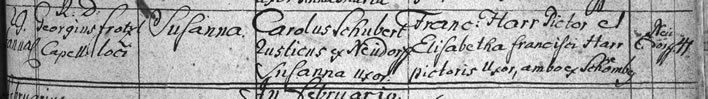 R. D.
Georgius frotzl
Capell: loci
Susanna.
Carolus Schubert
Rusticus ex Neüdorf
Susanna uxor.
Franc: Harr Pictor et
Elisabetha francisci Harr
pictoris Uxor, ambo ex Schömberg
Neü
dorf 44
In Februario.